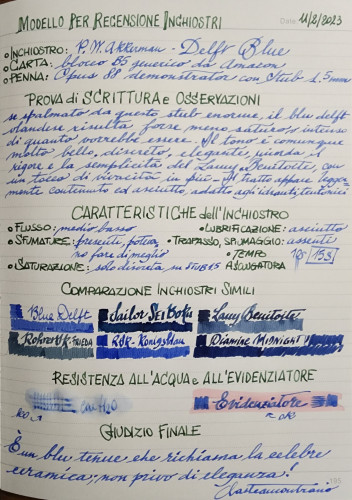 MODELLO PER RECENSIONE INCHIOSTRI
Date 11/8/2023
INCHIOSTRO: P.W. Akkerman - Delft Blue
CARTA: blocco B5 generico da Amazon
PENNA: Opus 88 demonstrator con stub 1.5mm
PROVA di SCRITTURA e OSSERVAZIONI
se spalmato da questo stub enorme, il blu delft
olandese risulta forse meno saturo e intenso
di quanto vorrebbe essere. Il tono è comunque
molto bello, discreto, elegante, ricorda il
rigore e la semplicità del Lamy Benitoite, con
un tocco di vivacità in più. Il tratto appare legger-
mente contenuto ed asciutto, adatto agli idranti teutonici
CARATTERISTICHE dell'INCHIOSTRO
FLUSSO: medio basso
LUBRIFICAZIONE: asciutto
SFUMATURE: presenti, poteva
no fare di meglio
TRAPASSO, SPIUMAGGIO: assenti
TEMPO 10s 15s
ASCIUGATURA
SATURAZIONE: solo discreta, su STUB 1.5
COMPARAZIONE INCHIOSTRI SIMILI
Blue Delft
Sailor SEI BOKU
Lamy Benitoite
Rohrer & K.
R&K Königsblau
Diamine MIDNIGHT
RESISTENZA ALL'ACQUA e ALL'EVIDENZIATORE
Evidenziatore
GIUDIZIO FINALE
È un blu tenue, che richiama la celebre
ceramica; non privo di eleganza!
195